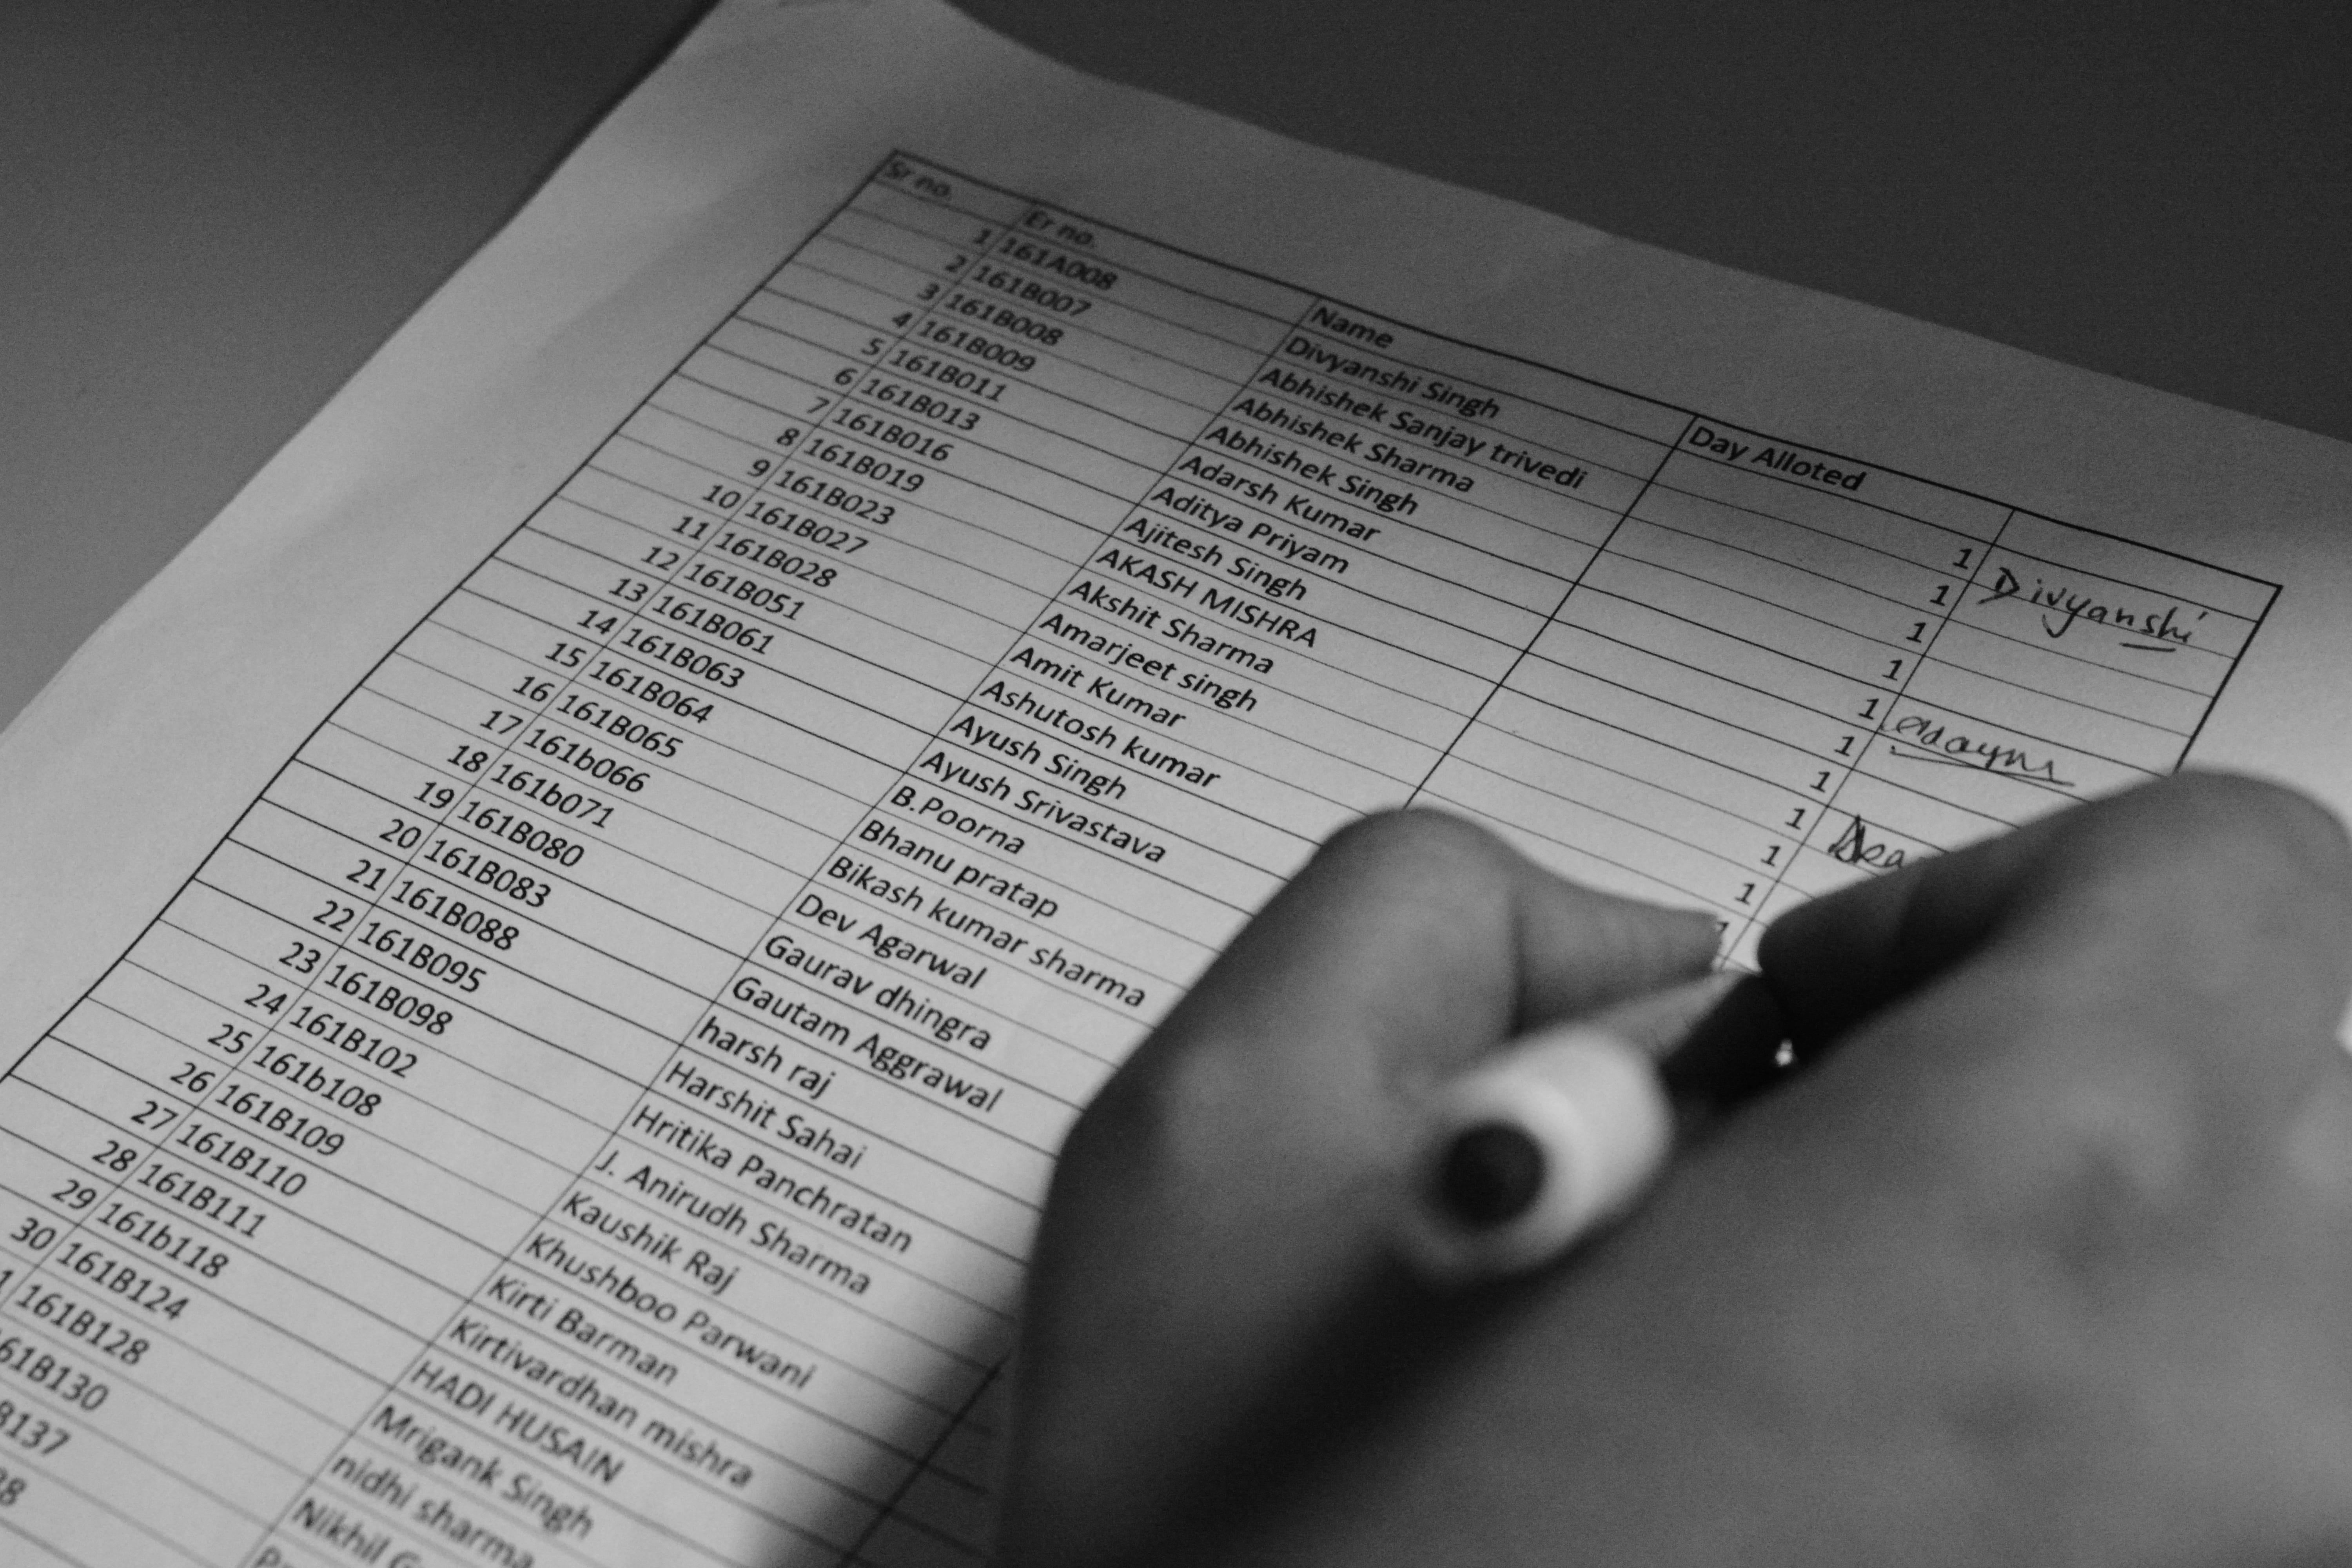 Sr no. Er no. Name Day Alloted
1 161A008 Divyanshi Singh 1 Divyanshi
2 161B007 Abhishek Sanjay trivedi 1
3 161B008 Abhishek Sharma 1
4 161B009 Abhishek Singh 1
5 161B011 Adarsh Kumar 1
6 161B013 Aditya Priyam 1
7 161B016 Ajitesh Singh 1
8 161B019 AKASH MISHRA 1
9 161B023 Akshit Sharma 1
10 161B027 Amarjeet singh 1
11 161B028 Amit Kumar 1
12 161B051 Ashutosh kumar
13 161B061 Ayush Singh
14 161B063 Ayush Srivastava
15 161B064 B.Poorna
16 161B065 Bhanu pratap
17 161b066 Bikash kumar sharma
18 161b071 Dev Agarwal
19 161B080 Gaurav dhingra
20 161B083 Gautam Aggrawal
21 161B088 harsh raj
22 161B095 Harshit Sahai
23 161B098 Hritika Panchratan
24 161B102 J. Anirudh Sharma
25 161b108 Kaushik Raj
26 161B109 Khushboo Parwani
27 161B110 Kirti Barman
28 161B111 Kirtivardhan mishra
29 161b118 HADI HUSAIN
30 161B124 Mrigank Singh
1 161B128 nidhi sharma
61B130 Nikhil G
B137